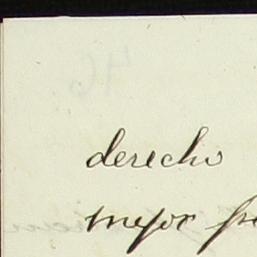 derecho
mejor